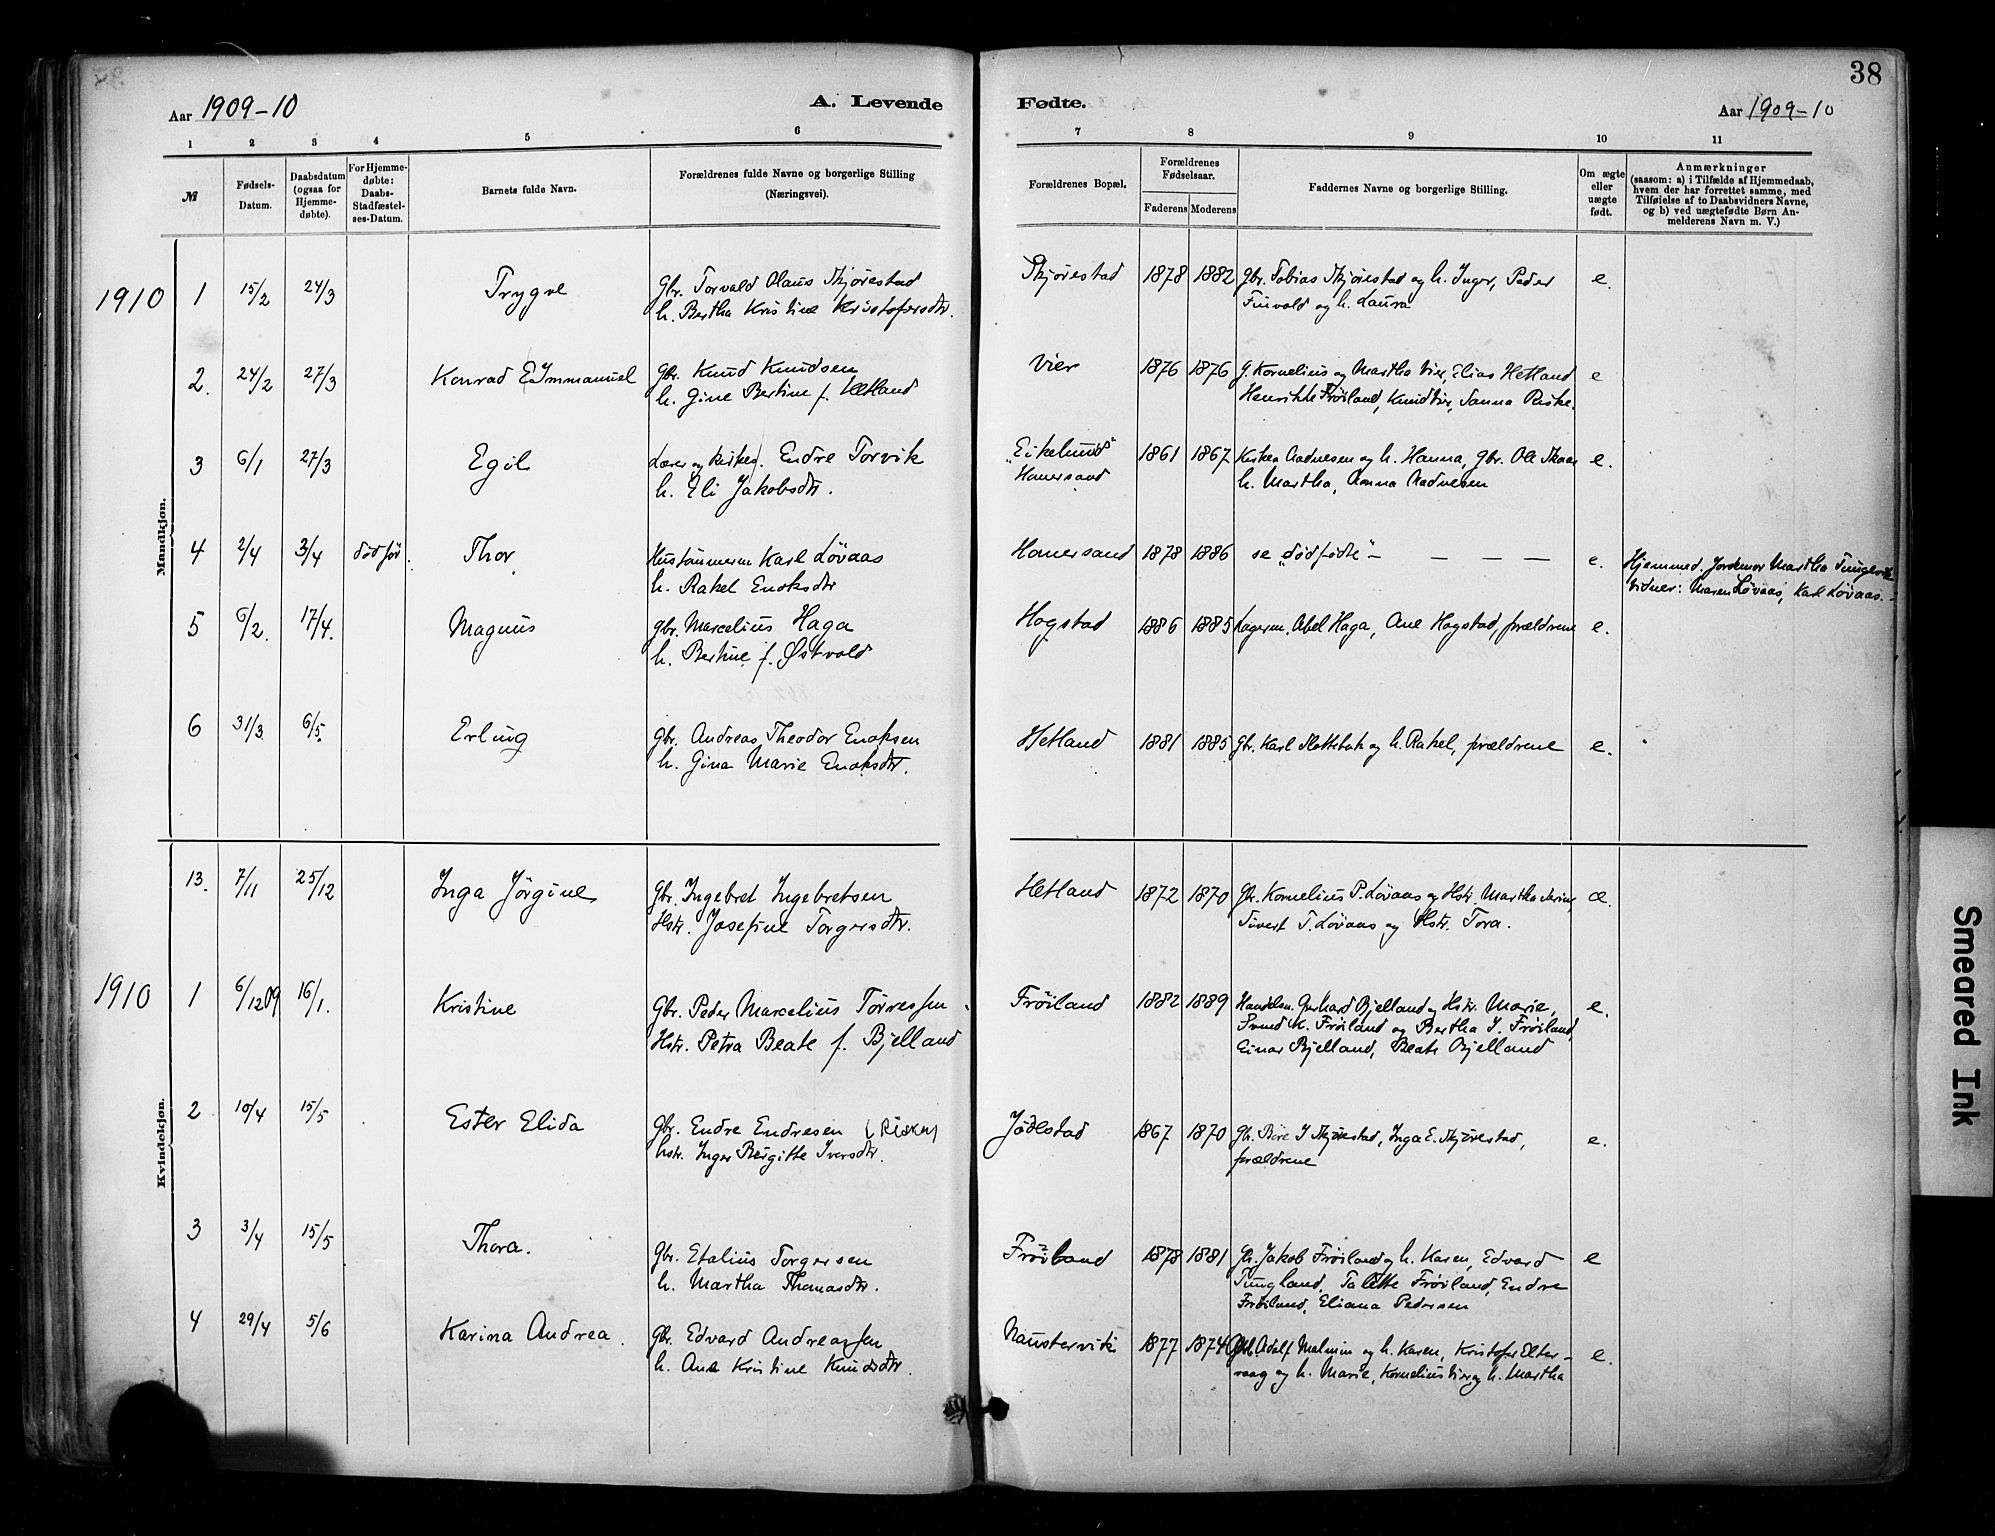 38
Aar 1909-10 A. Levende Fødte. Aar 1909-10
1 2 3 4 5 6 7 8 9 10 11
№ Fødsels-Datum. Daabsdatum (ogsaa for Hjemmedøbte). For Hjemmedøbte: Daabs-Stadfæstelses-Datum. Barnets fulde Navn. Forældrenes fulde Navne og borgerlige Stilling (Næringsvei). Forældrenes Bopæl. Forældrenes Fødselsaar. Faderens Moderens Faddernes Navne og borgerlige Stilling. Om ægte eller uægte født. Anmærkninger (saasom: a) i Tilfælde af Hjemmedaab, hvem der har forrettet samme, med Tilføielse af to Daabsvidners Navne, og b) ved uægtefødte Børn Anmelderens Navn m. V.)
Mandkjøn.
1910 1 15/2 24/3 Trygve Gbr. Torvald Olaus Skjørestad Skjørestad 1878 1882 Gbr. Tobias Skjørestad og h. Inger, Peder e.
h. Bertha Kristine Kristofersdtr. Finvold og h. Laura
2. 24/2 27/3 Konrad E Immanuel Gbr. Knud Knudsen Vier 1876 1876 G. Kornelius og Martha Vier, Elias Hetland e
h. Gine Bertine f. Hetland Henrikke Frøiland, Knud Vier, Sanna Riske.
3 6/1 27/3 Egil Lærer og Endre Torvik "Eikelund" 1861 1867 Aadnesen og h. Hanna, Gbr. Ole Skaar e.
h. Eli Jakobsdtr. Hanersand h. Martha, Anna Aadnesen
4 2/4 3/4 død før. Thor Karl Løvaas Hanersand 1878 1886 se "dødfødte" — — — — e. Hjemmed. Jordemor Martha
h. Rakel Enoksdtr Vidner: Maren Løvaas, Karl Løvaas.
5 6/2. 17/4. Magnus Gbr. Marcelius Haga Hogstad 1886 1885 Abel Haga, Ane Hogstad, forældrene e.
h. Bertine f. Østvold
6 31/3 6/5. Erling Gbr. Andreas Theodor Enoksen Hetland 1881 1885 Gbr. Karl og h. Rakel, forældrene e.
h. Gina Marie Enoksdtr.
Kvindekjøn.
13. 7/11 25/12 Inga Jørgine Gbr. Ingebret Ingebretsen Hetland 1872 1870 Gbr. Kornelius P. Løvaas og Hstr. Martha æ.
Hstr. Josefine Torgersdtr. Sivert T. Løvaas og Hstr. Tora.
1910 1 6/12 09 16/1. Kristine Gbr. Peder Marcelius Torressen Frøiland 1882 1889 Handelsm. Gerhard Bjelland og Hstr. Marie, e.
Hstr. Petra Beate f. Bjelland Svend K. Frøiland og Bertha I. Frøiland,
Einar Bjelland, Beate Bjelland
2 10/4 15/5 Ester Elida Gbr. Endre Endresen Jødestad 1867 1870 Gbr. I Skjørestad, Inga E. Skjørestad, e.
hstr. Inger Birgitte Iversdtr. forældrene
3 3/4 15/5 Thora. Gbr. Etalius Torgersen Frøiland 1878 1881 Gbr. Jakob Frøiland og h. Karen, Edvard e
h. Martha Thomasdtr. Tungland, Talette Frøiland, Endre
Frøiland, Eliana Pedersen
4 29/4 5/6 Karina Andrea. Gbr. Edvard Andreassen Naustervik 1877 1874 Gbr. Adolf Malmin og h. Karen, Kristofer Elter- e.
h. Ane Kristine Knudsdtr. vaag og h. Marie, Kornelius Vier og h. Martha
Smeared Ink